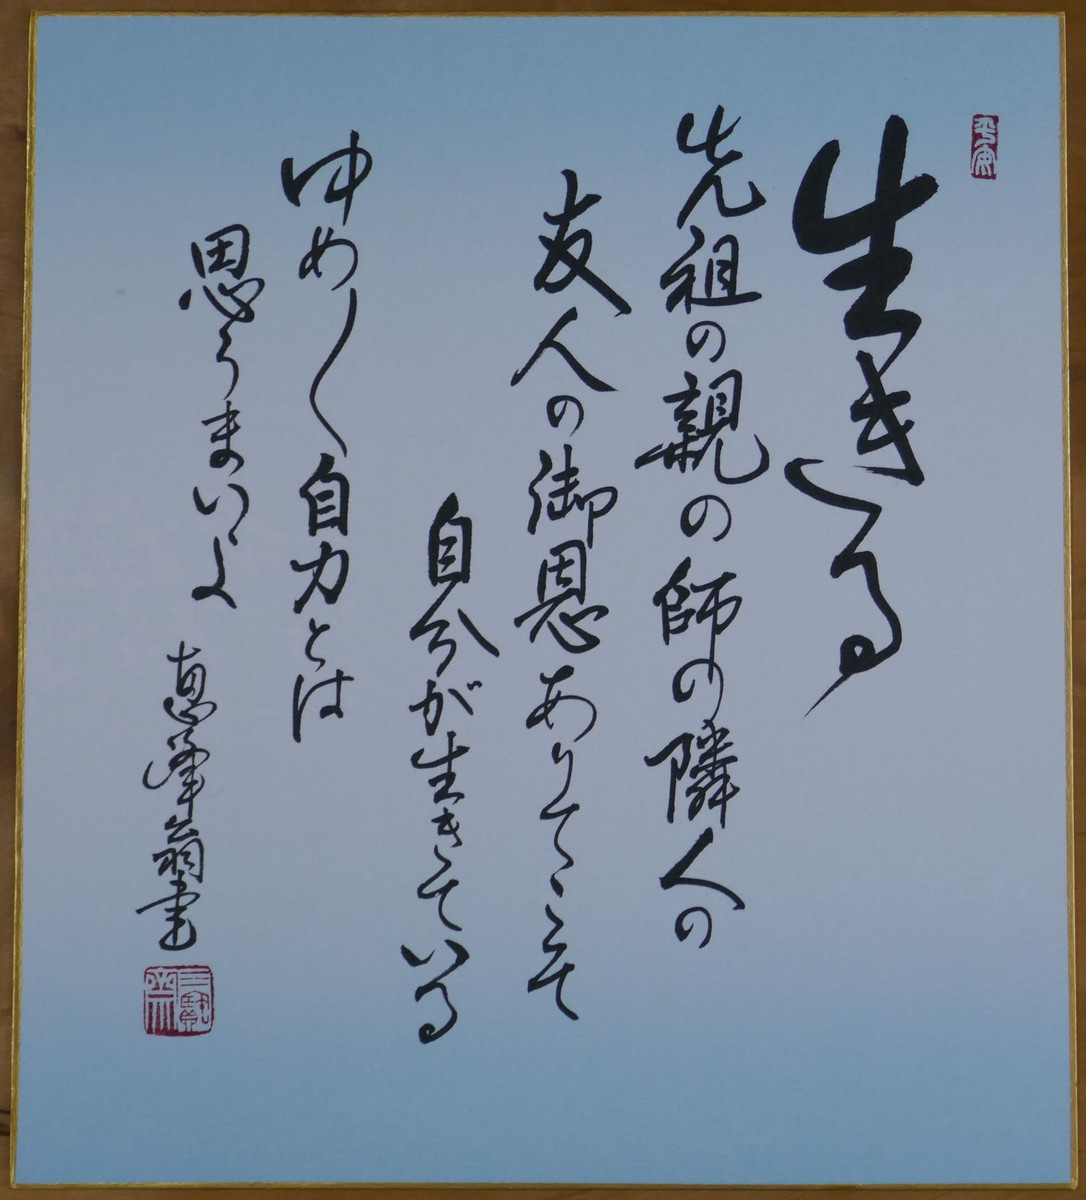 生きる
先祖の親の師の隣人の
友人の御恩ありてこそ
自分が生きている
ゆめ〱自力とは
思うまいよ
恵峰翁書
平安